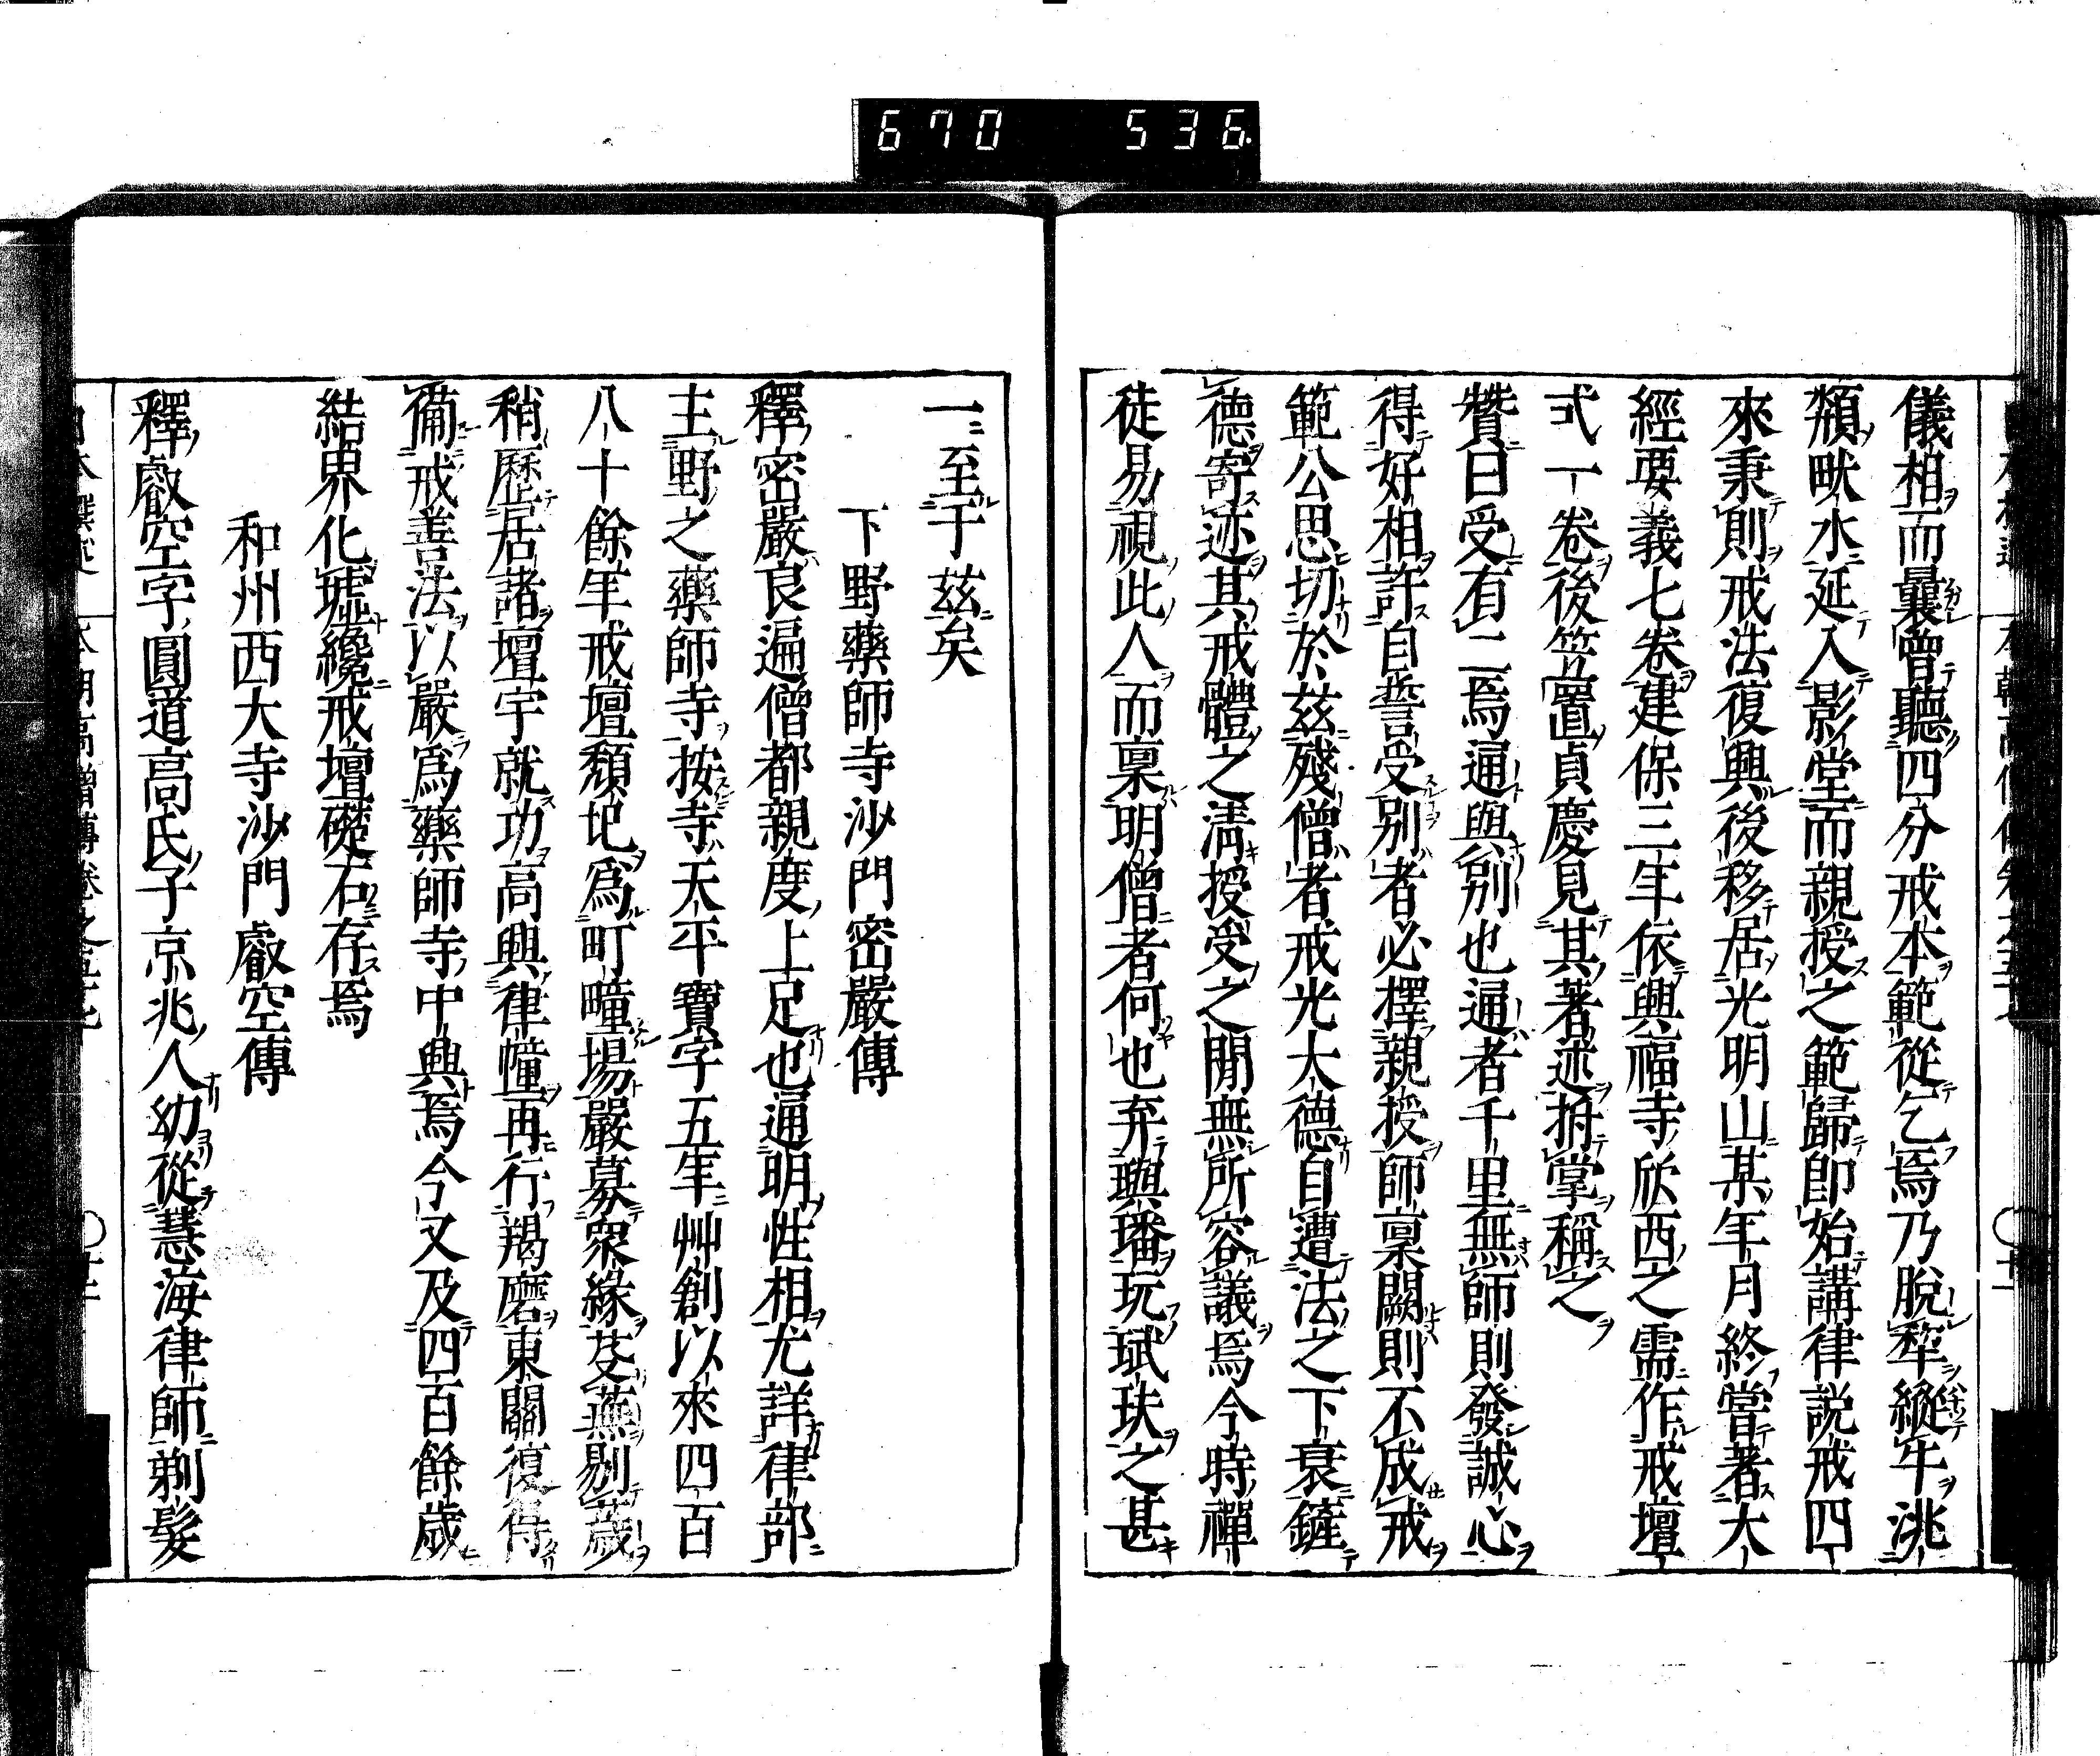 670 536
儀相而曩曽聽四分戒本範從乞焉乃脫犂縱牛洮
頮畎水延入影堂而親授之範歸即始講律説戒四
來秉則戒法復興後移居光明山某年月終嘗著大
經要義七卷建保三年依興福寺欣西之需作戒壇
式一卷後笠置貞慶見其著述拊掌稱之
贊曰受有二焉通與別也通者千里無師則發誠心
得好相許自誓受別者必擇親授師稟闕則不成戒
範公思切於茲殘僧者戒光大德自遭法之下衰鏟
德寄迹其戒體之淸授受之閒無所容議焉今時禪
徒易視此人而稟明僧者何也弃璵璠玩珷玞之甚
一至于茲矣
下野藥師寺沙門密嚴傳
釋密嚴良遍僧都親度上足也通明性相尤詳律部
主野之藥師寺按寺天平寶字五年艸創以來四百
八十餘年戒壇頹圮爲町疃場嚴募衆緣芟蕪剔薉
稍歷居諸壇宇就功高興律幢再行羯磨東關復得
備戒善法以嚴爲藥師寺中興焉今又及四百餘歲
結界化墟纔戒壇礎石存焉
和州西大寺沙門叡空傳
釋叡空字圓道高氏子京兆人幼從慧海律師剃髮